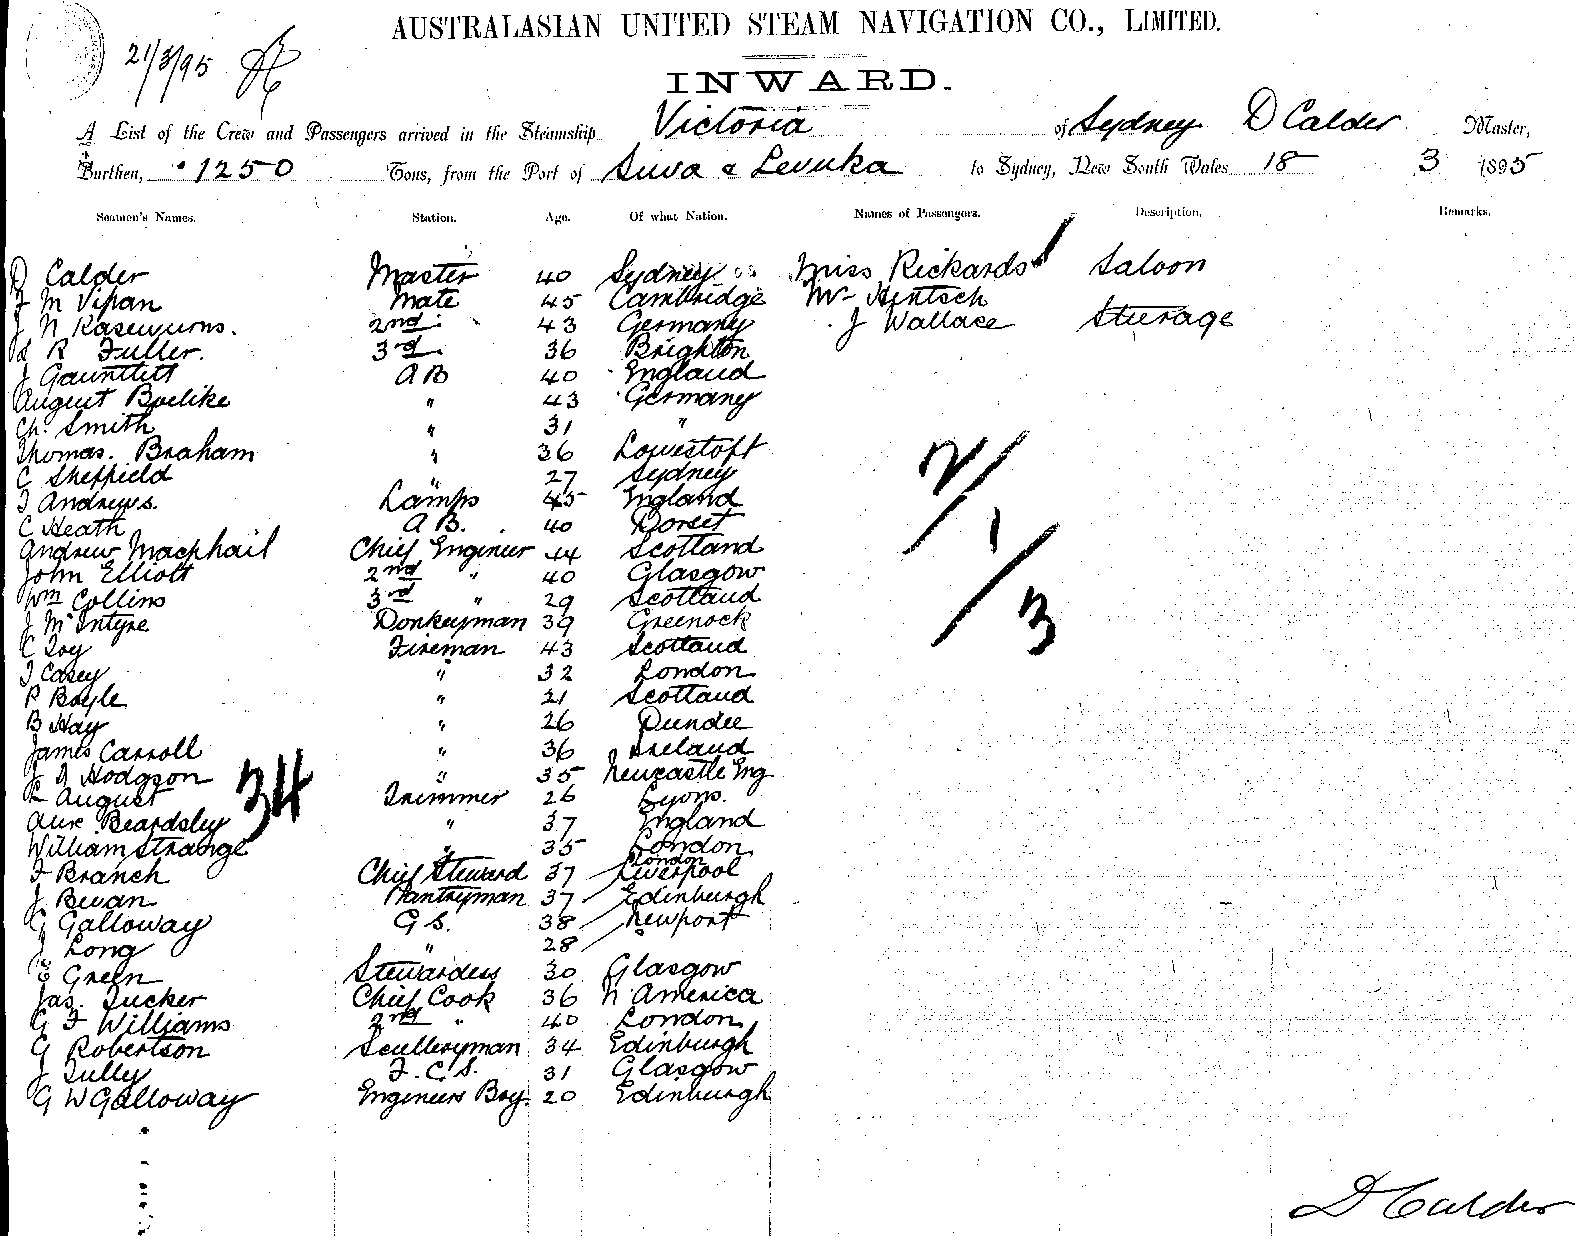 AUSTRALASIAN UNITED STEAM NAVIGATION CO., LIMITED.
21/3/95
INWARD.
A List of the Crew and Passengers arrived in the Steamship Victoria of Sydney D Calder Master,
Burthen, 1250 Tons, from the Port of Suva & Levuka to Sydney, New South Wales 18 3 1895
Seamen's Names. Station. Age. Of what Nation. Names of Passengers. Description. Remarks.
D Calder Master 40 Sydney Miss Rickards Saloon
J M Vipan Mate 45 Cambridge Mr Hintsch
J N Rasewurns. 2nd 43 Germany J Wallace Sturage
R Fuller. 3rd 36 Brighton
J Gauntlett A B 40 England
August Boelike " 43 Germany
Ch. Smith " 31 "
Thomas. Braham " 36 Lowestoft
C Sheffield " 27 Sydney
T Andrews. Lamps 45 England
C Heath A B. 40 Dorset
Andrew Macphail Chief Engineer 44 Scotland
John Elliott 2nd " 40 Glasgow
Wm Collins 3rd " 29 Scotland
J McIntyre Donkeyman 39 Greenock
C Foy Fireman 43 Scotland
T Casey " 32 London
P Boyle " 21 Scotland
B Hay " 26 Dundee
James Carroll " 36 Ireland
J Hodgson " 35 Newcastle Eng
R August Trimmer 26 Lyons.
Beardsley " 37 England
William Strange " 35 London
F Branch Chief Steward 37 London Liverpool
J Bevan Pantryman 37 Edinburgh
G Galloway G S. 38 Newport
J Long " 28
E Green Stewardess 30 Glasgow
Jas. Tucker Chief Cook 36 N America
G F Williams 2nd " 40 London
G Robertson Sculleryman 34 Edinburgh
J Tully F. C. S. 31 Glasgow
G W Galloway Engineers Boy. 20 Edinburgh
34
2/1/3
D Calder